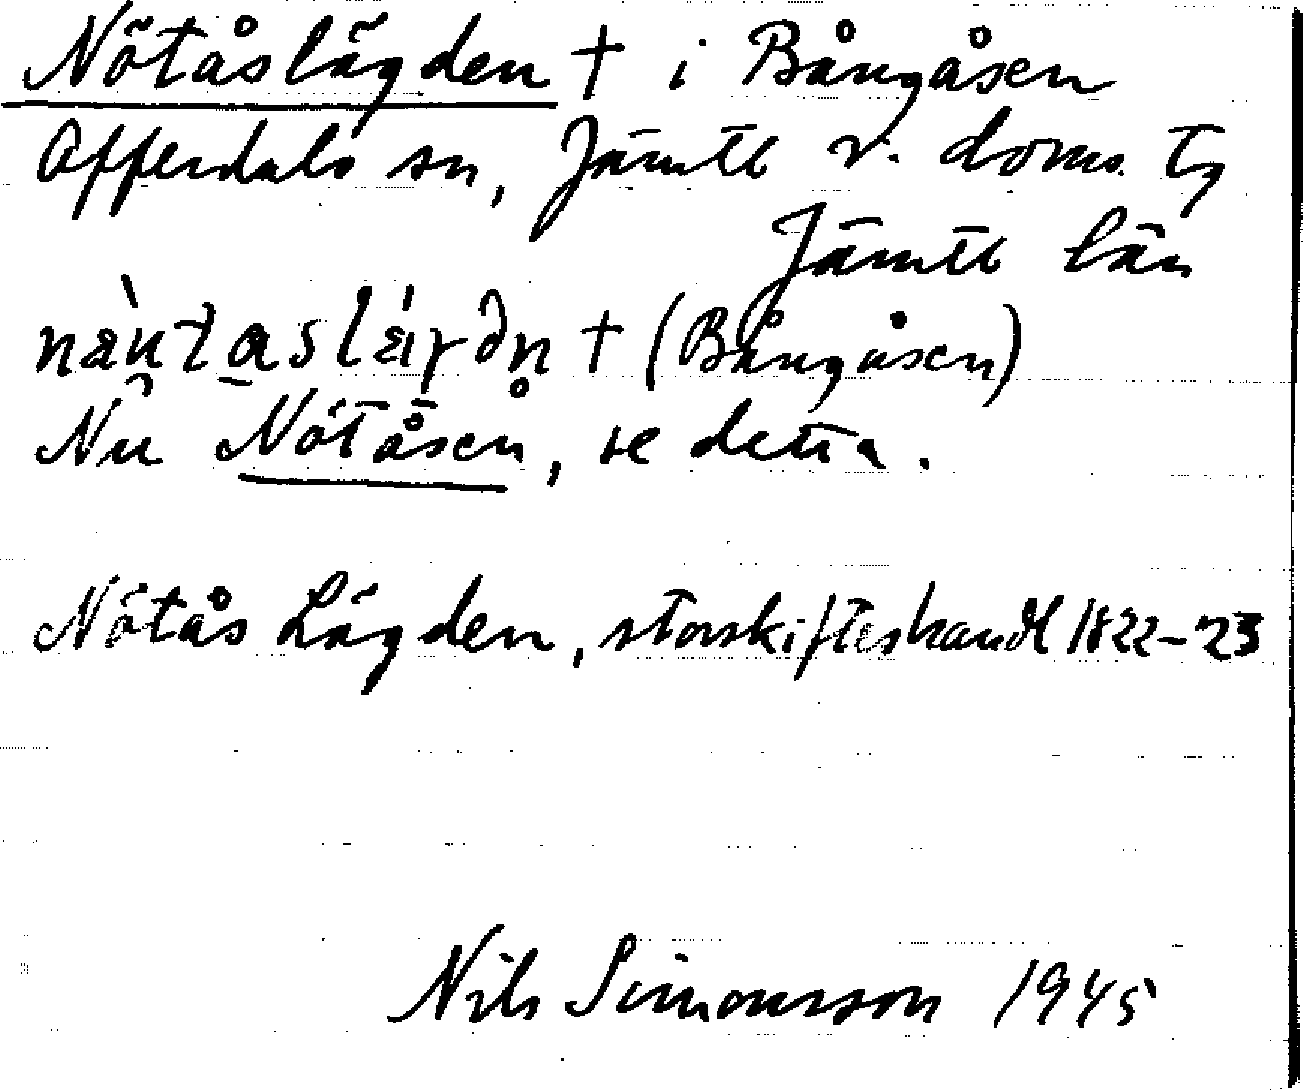 Nötåslägden † i Bångåsen
Offerdals sn, Jämtl v. doms. tg
Jämtl län
† (Bångåsen)
Nu Nötåsen, se detta.
Nötås Lägden, storskifteshandl 1822-23
Nils Simonsson 1945